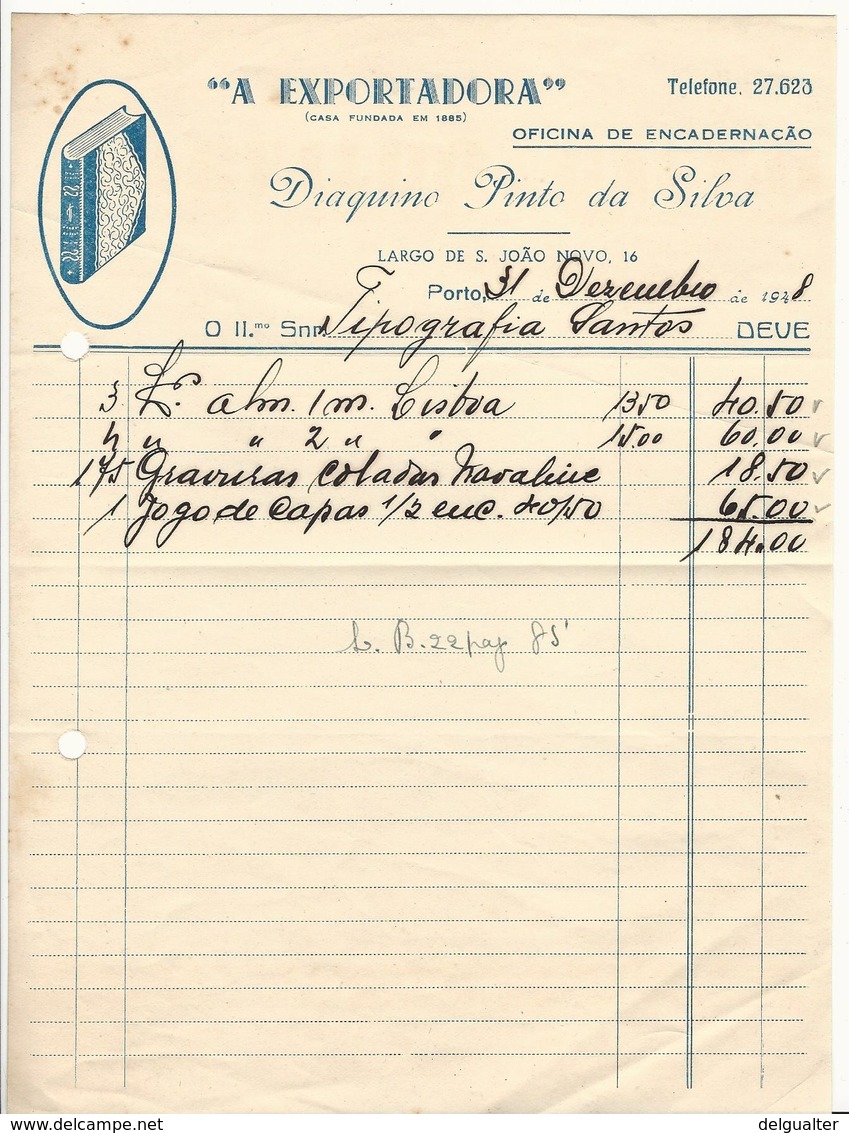 "A EXPORTADORA"
(CASA FUNDADA EM 1885)
Telefone, 27.623
OFICINA DE ENCADERNAÇÃO
Diaquino Pinto da Silva
LARGO DE S. JOÃO NOVO, 16
Porto, 31 de Dezembro de 1948
O Il.mo Snr. Tipografia Santos DEVE
3 L.os alm. 1 m. Lisboa 13.50 40.50
4 " " 2 " " 15.00 60.00
175 Gravuras coladas Navaline 18.50
1 Jogo de Capas 1/2 enc. 40/50 65.00
184.00
L. B. 22 pag 85
www.delcampe.net
delgualter